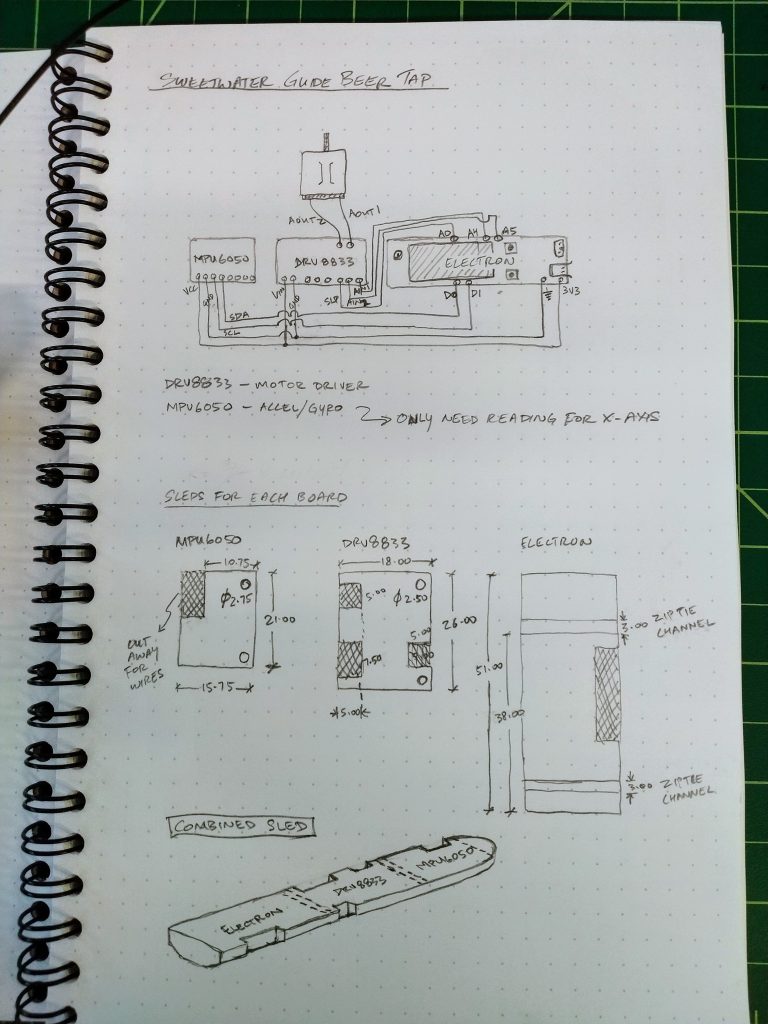 SWEETWATER GUIDE BEER TAP
AOUT2 AOUT1
A0 A4 A5
MPU6050 DRV8833 ELECTRON
VCC GND VM GND SLP AIN2 AIN1 D0 D1 3V3
SDA
SCL
DRV8833 – MOTOR DRIVER
MPU6050 – ACCEL/GYRO → ONLY NEED READING FOR X-AXIS
SLEDS FOR EACH BOARD
MPU6050 DRV8833 ELECTRON
10.75 18.00
Ø2.75 5.00 Ø2.50
21.00 26.00 3.00 ZIPTIE
CHANNEL
CUT
AWAY
FOR
WIRES
5.00
7.50
51.00
15.75
5.00
38.00
3.00 ZIPTIE
CHANNEL
COMBINED SLED
ELECTRON DRV8833 MPU6050